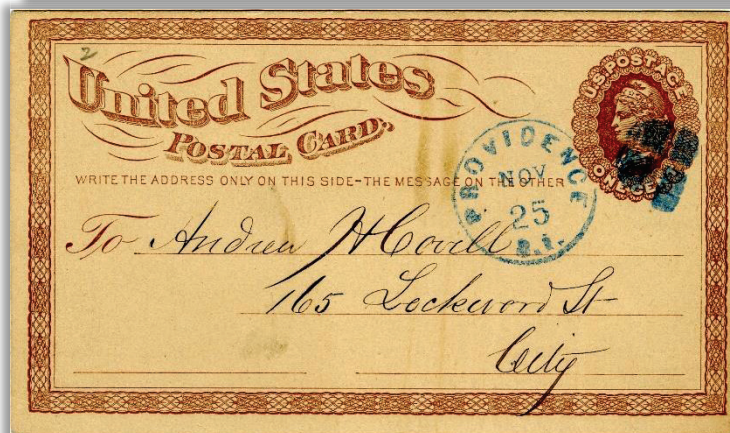 2
United States
POSTAL CARD.
U.S. POSTAGE
ONE CENT
WRITE THE ADDRESS ONLY ON THIS SIDE-THE MESSAGE ON THE OTHER
PROVIDENCE
NOV
25
R.I.
To Andrew H Covill
165 Lockwood St
City